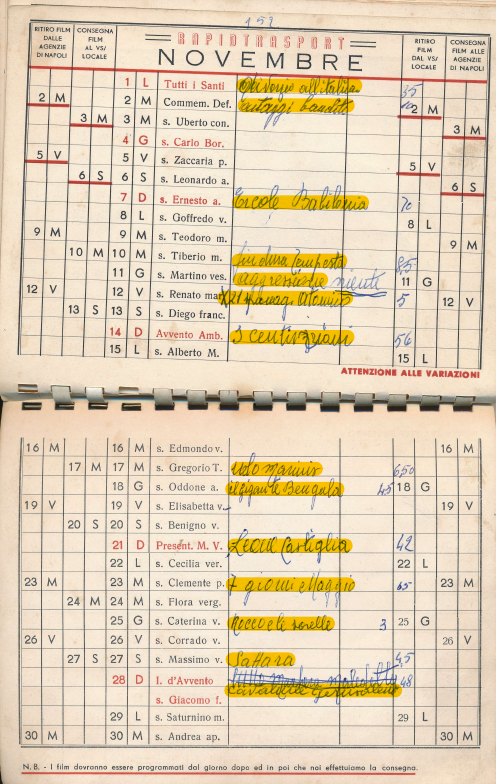 RITIRO FILM DALLE AGENZIE DI NAPOLI
CONSEGNA FILM AL VS/ LOCALE
RAPIDTRASPORT
NOVEMBRE
RITIRO FILM DAL VS/ LOCALE
CONSEGNA FILM ALLE AGENZIE DI NAPOLI
1 L Tutti i Santi Divorzio all'italiana 35
2 M 2 M Commem. Def. 2 M
3 M 3 M s. Uberto con. 3 M
4 G s. Carlo Bor.
5 V 5 V s. Zaccaria p. 5 V
6 S 6 S s. Leonardo a. 6 S
7 D s. Ernesto a. Ercole Babilonia 70
8 L s. Goffredo v. 8 L
9 M 9 M s. Teodoro m. 9 M
10 M 10 M s. Tiberio m. Tempesta
11 G s. Martino ves. aggressione niente 11 G
12 V 12 V s. Renato mar. Atomico 5 12 V
13 S 13 S s. Diego franc.
14 D Avvento Amb. 3 centurioni 56
15 L s. Alberto M. 15 L
ATTENZIONE ALLE VARIAZIONI
16 M 16 M s. Edmondo v. 16 M
17 M 17 M s. Gregorio T. 650
18 G s. Oddone a. il gigante Bengala 45 18 G
19 V 19 V s. Elisabetta v. 19 V
20 S 20 S s. Benigno v.
21 D Present. M. V. Leoni Castiglia 42
22 L s. Cecilia ver. 22 L
23 M 23 M s. Clemente p. 7 giorni a Maggio 23 M
24 M 24 M s. Flora verg.
25 G s. Caterina v. Rocco e le sorelle 3 25 G
26 V 26 V s. Corrado v. 26 V
27 S 27 S s. Massimo v. 45
28 D I. d'Avvento 48
s. Giacomo f.
29 L s. Saturnino m. 29 L
30 M 30 M s. Andrea ap. 30 M
N.B. - I film dovranno essere programmati dal giorno dopo ed in poi che noi effettuiamo la consegna.